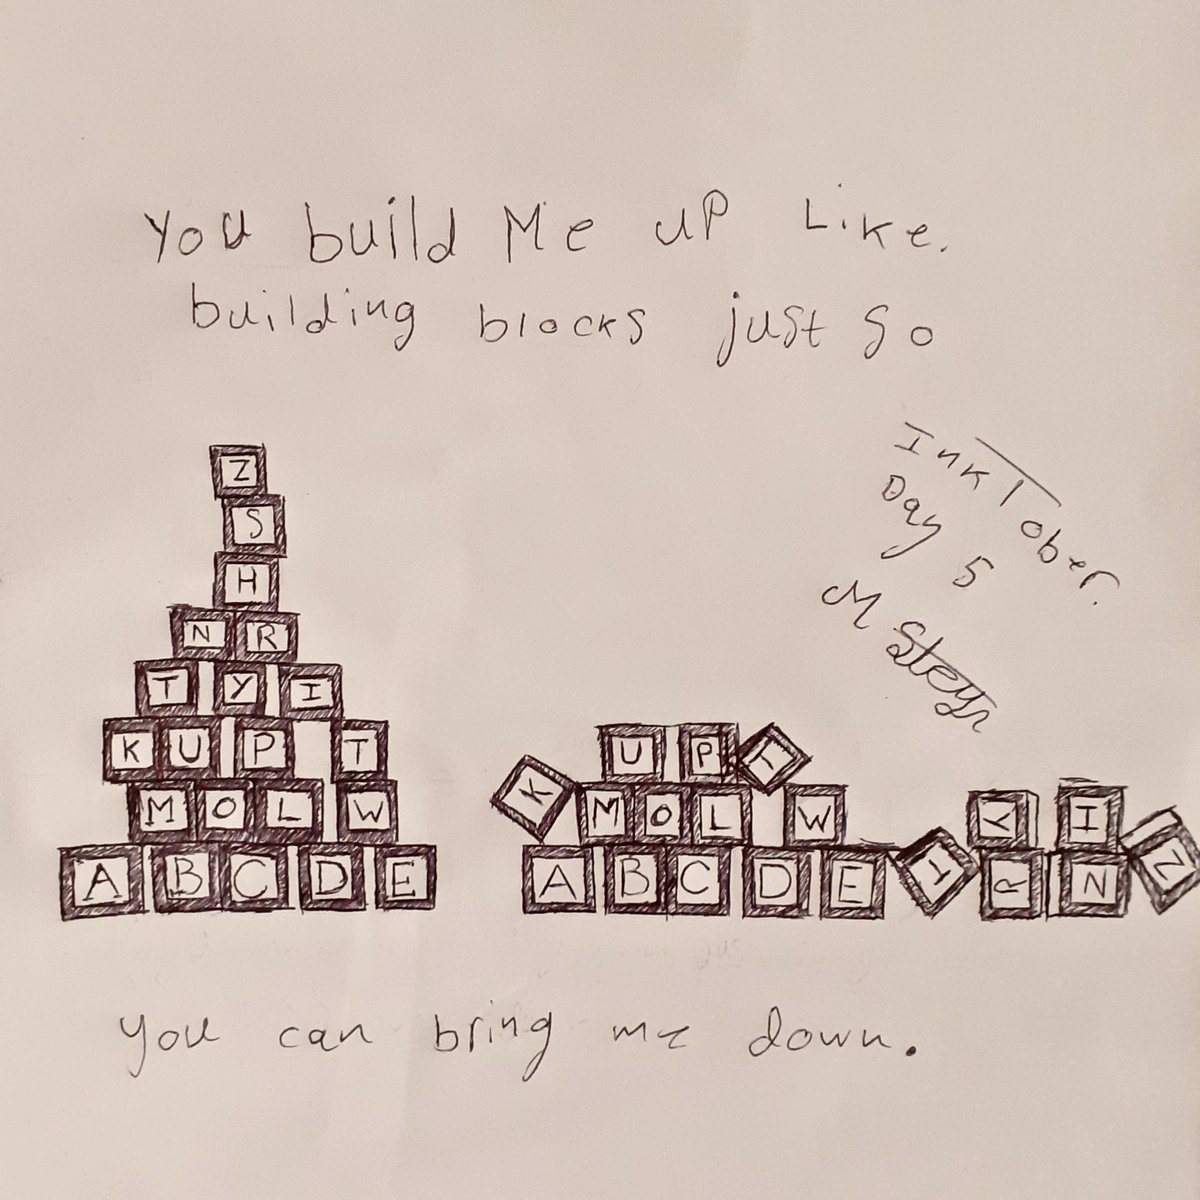 You build Me up Like.
building blocks just so
InkTober.
Day 5
M Steyn
Z
S
H
N R
T Y I
K U P T
M O L W
A B C D E
U P T
K M O L W Y I
A B C D E I R N Z
you can bring me down.